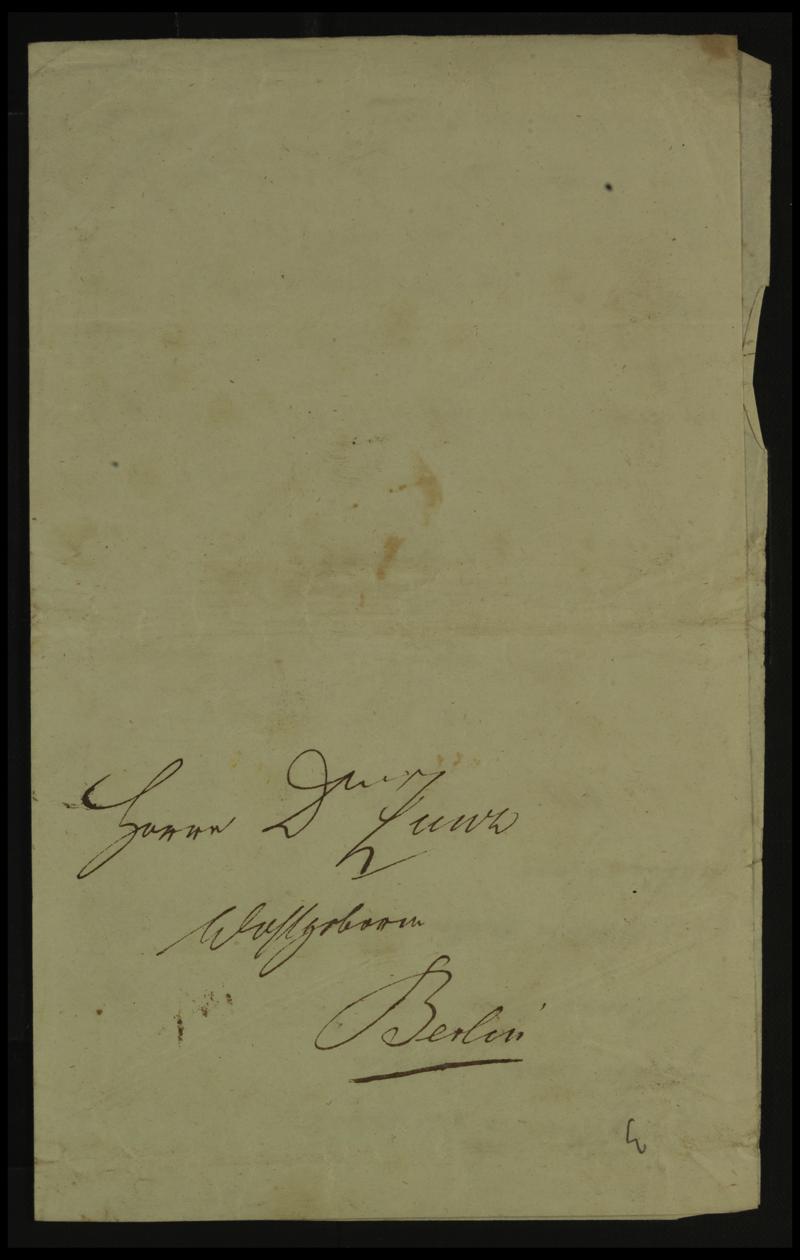 Herrn Dr Zunz
Wohlgeboren
Berlin